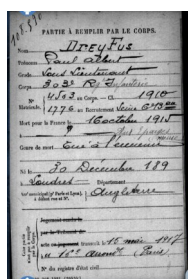 PARTIE À REMPLIR PAR LE CORPS.
Nom DREYFUS
Prénoms Paul Albert
Grade Sous Lieutenant
Corps 303e Rt Infanterie
N° 4503 au Corps. — Cl. 1910
Matricule. 1776 au Recrutement Seine
Mort pour la France le 16 octobre 1915
à
Genre de mort Tué à l'ennemi
Né le 30 Décembre 189
à Londres Département
Arrt municipal (pr Paris et Lyon), à défaut rue et N°. Angleterre
Jugement rendu le
par le Tribunal de
acte ou jugement transcrit le 16 mai 1917
à 16e Arrondt (Paris)
N° du registre d'état civil